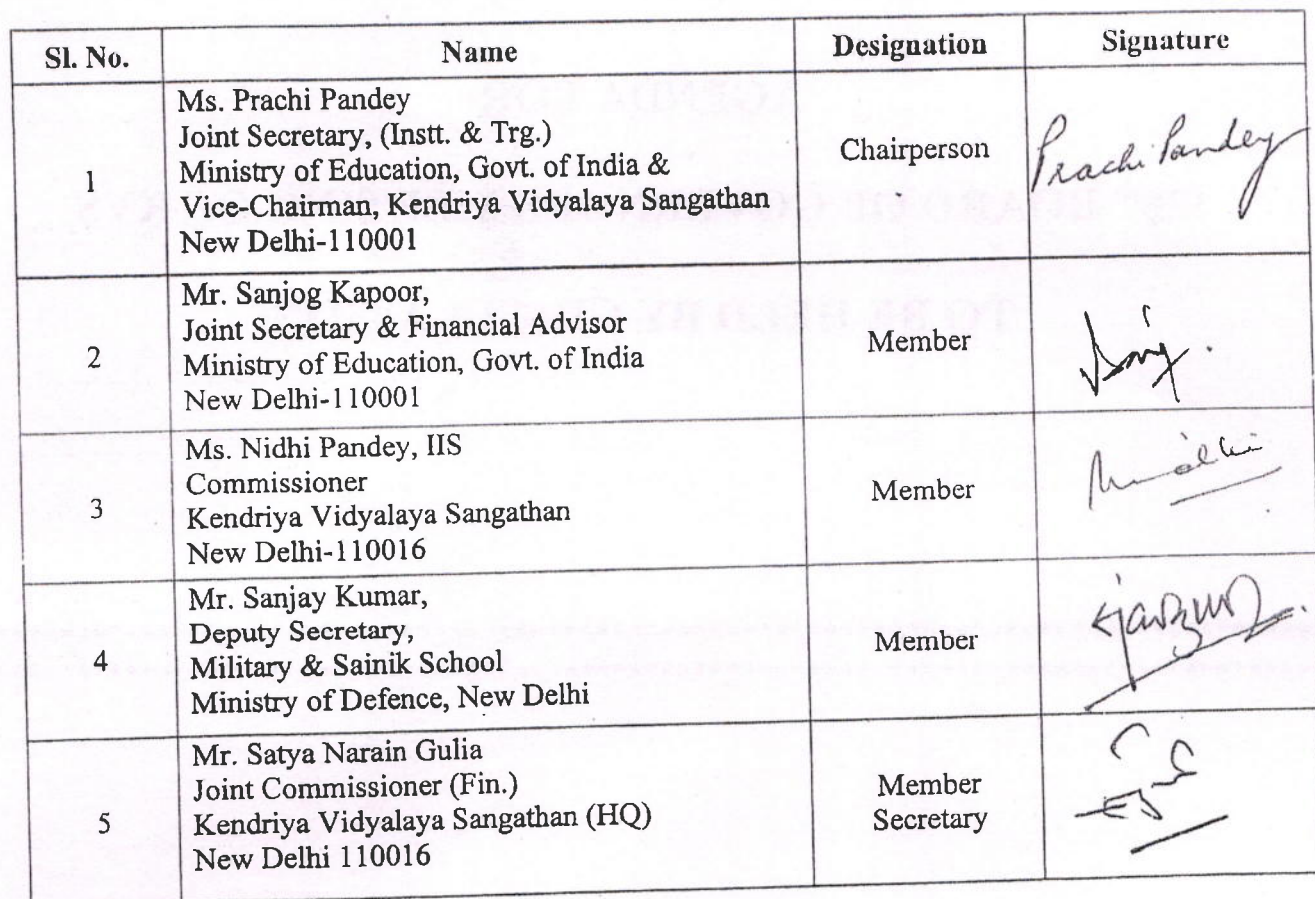 Sl. No. Name Designation Signature
1
Ms. Prachi Pandey
Joint Secretary, (Instt. & Trg.)
Ministry of Education, Govt. of India &
Vice-Chairman, Kendriya Vidyalaya Sangathan
New Delhi-110001
Chairperson
Prachi Pandey
2
Mr. Sanjog Kapoor,
Joint Secretary & Financial Advisor
Ministry of Education, Govt. of India
New Delhi-110001
Member
3
Ms. Nidhi Pandey, IIS
Commissioner
Kendriya Vidyalaya Sangathan
New Delhi-110016
Member
Nidhi
4
Mr. Sanjay Kumar,
Deputy Secretary,
Military & Sainik School
Ministry of Defence, New Delhi
Member
5
Mr. Satya Narain Gulia
Joint Commissioner (Fin.)
Kendriya Vidyalaya Sangathan (HQ)
New Delhi 110016
Member
Secretary